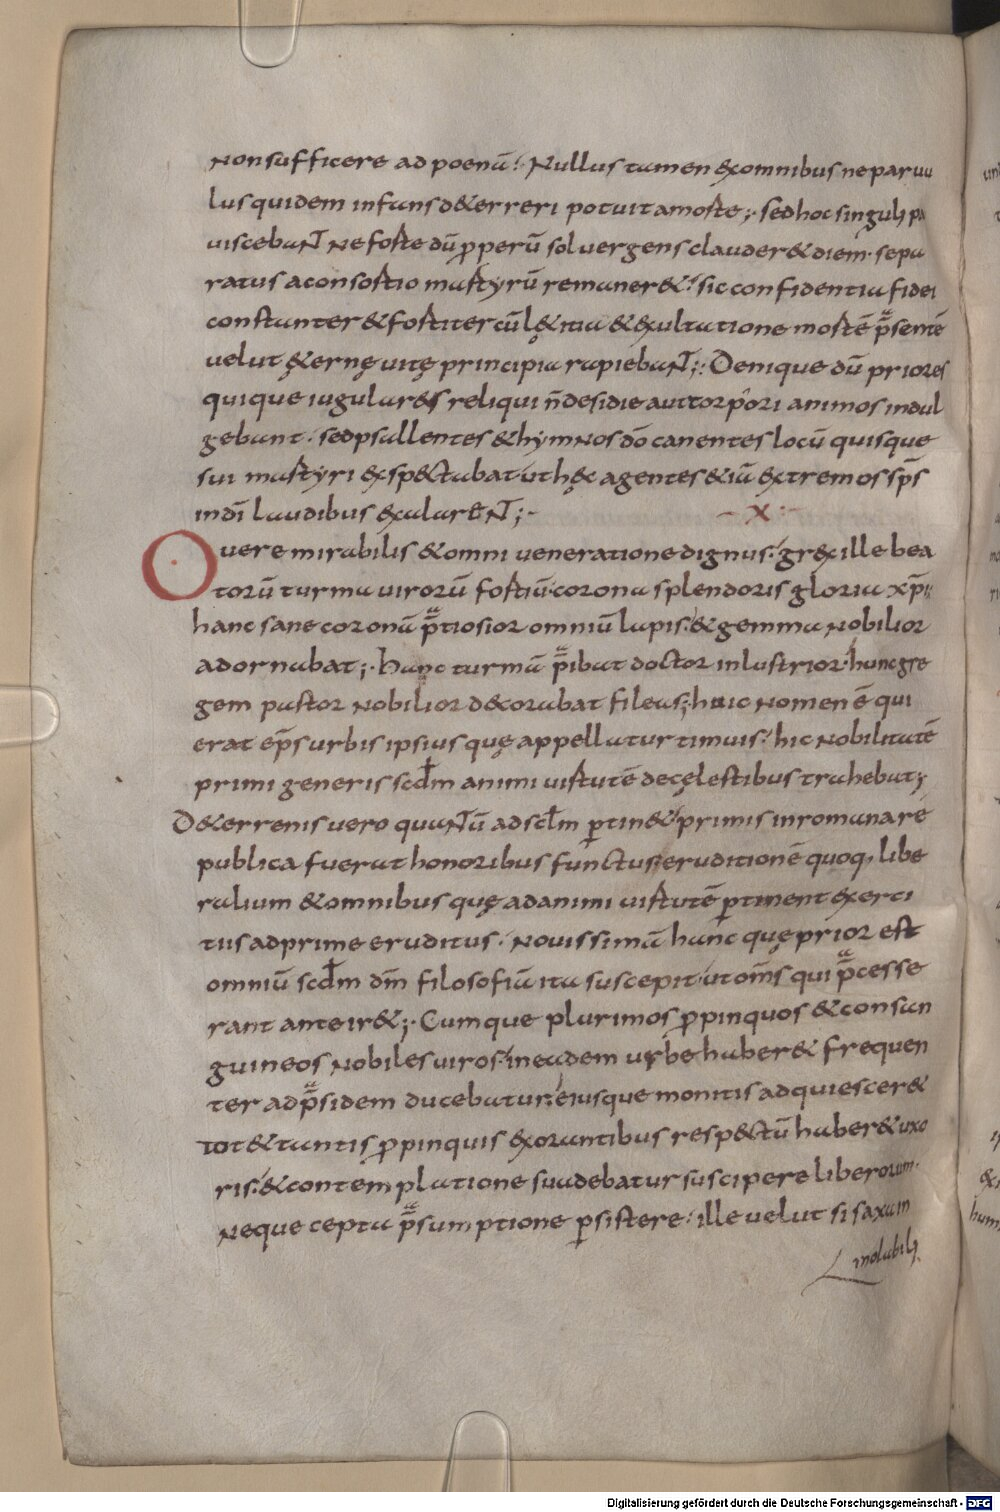 non sufficere ad poenā. Nullus tamen ex omnibus ne paruu
lus quidem infans deterreri potuit a morte; sed hoc singuli pa
uiscebant ne forte dū properū sol uergens clauderet diem. sepa
ratus a consortio martyrū remaneret. sic confidentia fidei
constanter et fortiter cū lętitia et exultatione mortē p̄sentē
uelut ęternę uitę principia rapiebant; Denique dū priores
quique iugularets reliqui n̄ desidie aut torpori animos indul
gebant. sed psallentes et hymnos dō canentes locū quisque
sui martyri exspectabat ut hęc agentes et iā extremos sp̄s
in dī laudibus exalarent;
X
O uere mirabilis et omni ueneratione dignus. grex ille bea
torū turma uirorū fortiū. corona splendoris gloria xp̄i;
hanc sane coronā p̄tiosior omniū lapis. et gemma nobilior
adornabat; hanc turmā p̄ibat doctor inlustrior. hunc gre
gem pastor nobilior decorabat fileas; huic nomen ē qui
erat ep̄s urbis ipsius quę appellatur timuis. hic nobilitatē
primi generis scdm animi uirtutē de cęlestibus trahebat;
De terrenis uero quantū ad sclm pertinet primis in romana rē
publica fuerat honoribus functus. eruditionē quoq, libe
ralium et omnibus quę ad animi uirtutē pertinent exerci
tiis adprime eruditus. Nouissimā hanc quę prior est
omniū scdm dm̄ filosofiā ita suscepit ut om̄s qui p̄cesse
rant anteiret; Cumque plurimos propinquos et consan
guineos nobiles uiros. in eadem urbe haberet frequen
ter ad p̄sidem ducebatur. eiusque monitis adquiesceret
tot et tantis propinquis exorantibus respectū haberet uxo
ris. et contemplatione suadebatur suscipere liberorum.
Neque cepta p̄sumptione persistere. ille uelut si saxum
Digitalisierung gefördert durch die Deutsche Forschungsgemeinschaft - DFG